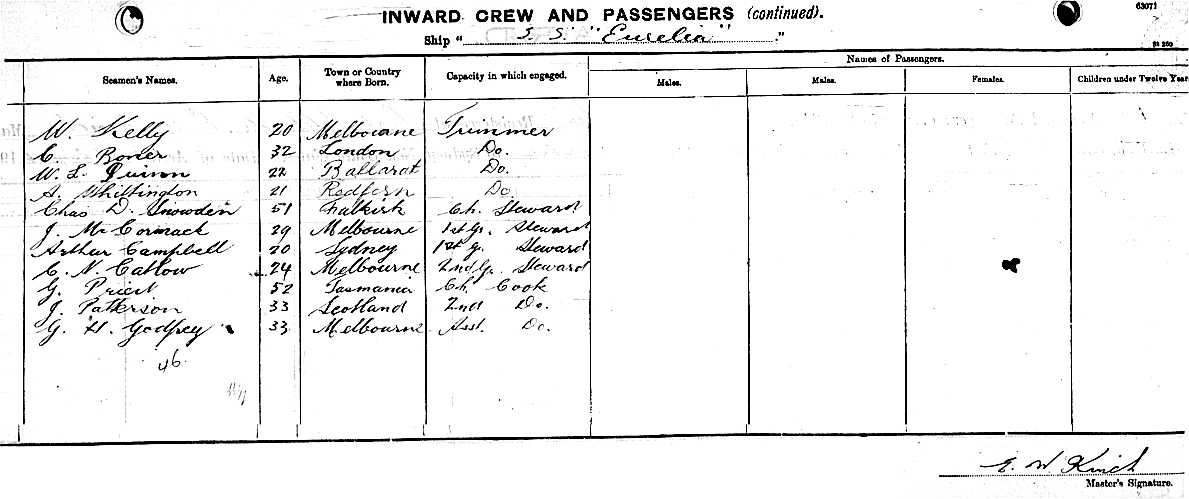 INWARD CREW AND PASSENGERS (continued).
63071
Ship " S. S. "Eurelia" "
Seamen's Names. Age. Town or Country where Born. Capacity in which engaged. Names of Passengers.
Males. Males. Females. Children under Twelve Year
W. Kelly 20 Melbourne Trimmer
C. Boner 32 London Do.
W. L. Quinn 22 Ballarat Do.
A. Whittington 21 Redfern Do.
Chas D. Snowden 51 Falkirk Ch. Steward
J. McCormack 29 Melbourne 1st Gr. Steward
Arthur Campbell 20 Sydney 1st Gr. Steward
C. N. Catlow 24 Melbourne 2nd Gr. Steward
G. Priest 52 Tasmania Ch. Cook
J. Patterson 33 Scotland 2nd Do.
G. H. Godfrey 33 Melbourne Asst. Do.
46
E. W. Kinch
Master's Signature.